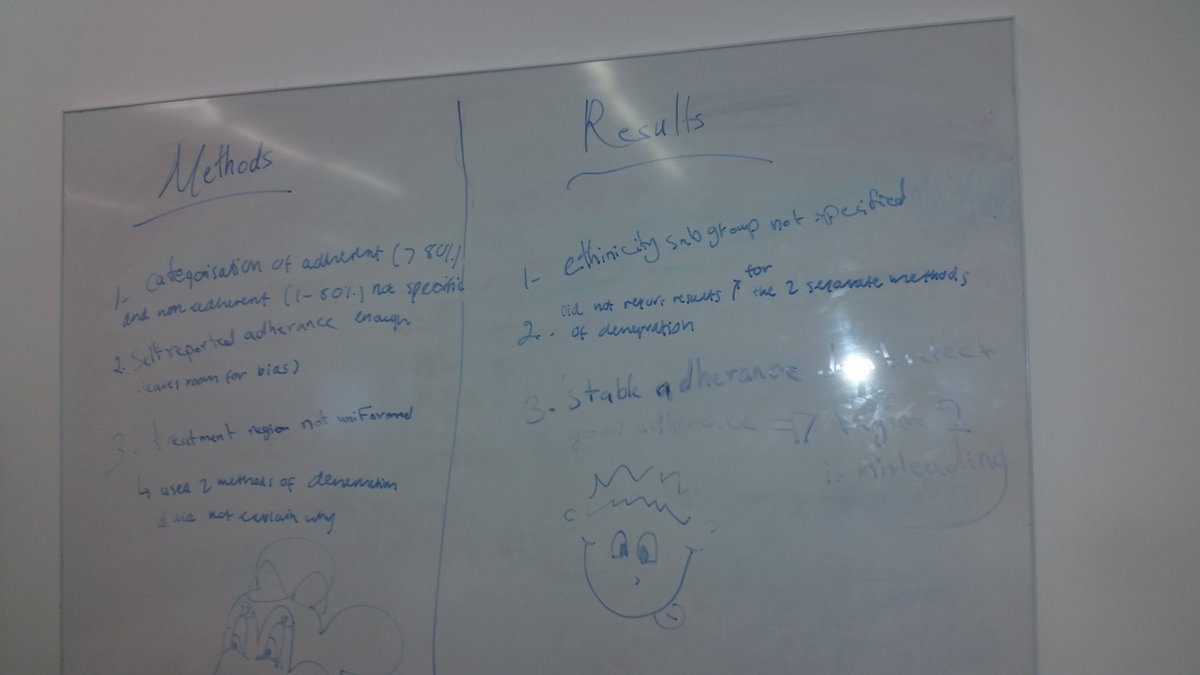 Methods
1- categorisation of adherent (>80%)
and non-adherent (1-80%) not specific
enough
2. Self reported adherance
(leaves room for bias)
3. treatment region not uniformed
↳ used 2 methods of denervation
& did not explain why
Results
1- ethinicity subgroup not specified
2. Did not report results for the 2 separate methods
of denervation
3. Stable adherance
good adherance => Figure 2
is misleading